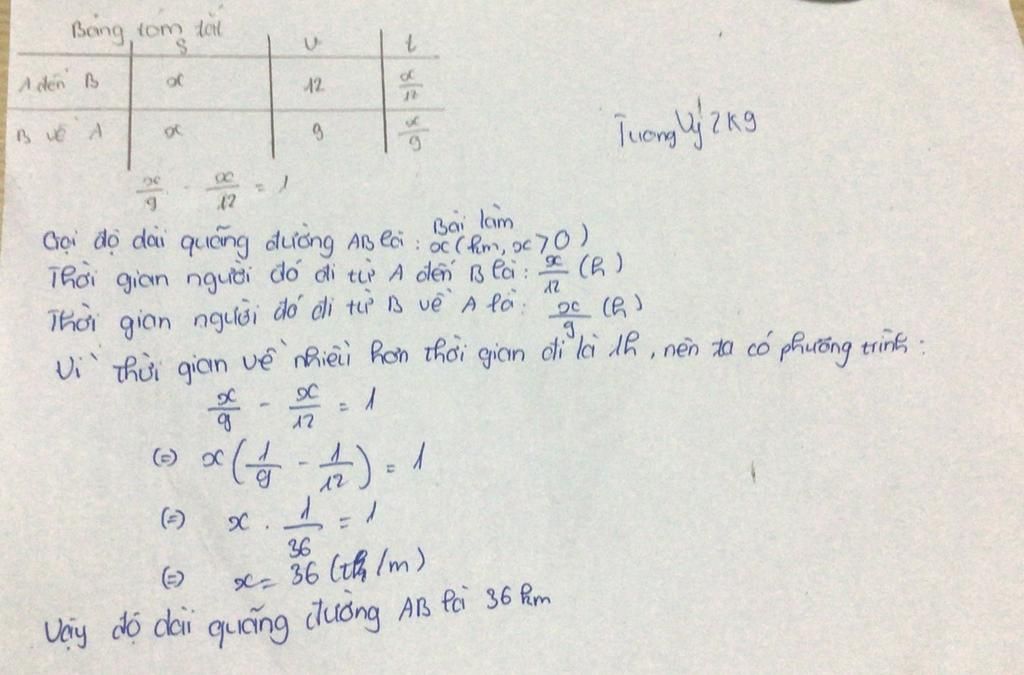 Bảng tóm tắt
S v t
A đến B x 12 x/12
B về A x 9 x/9
x/9 - x/12 = 1
Tương Vy 2K9
Bài làm
Gọi độ dài quãng đường AB là: x (km, x > 0)
Thời gian người đó đi từ A đến B là: x/12 (h)
Thời gian người đó đi từ B về A là: x/9 (h)
Vì thời gian về nhiều hơn thời gian đi là 1h, nên ta có phương trình:
x/9 - x/12 = 1
(=) x(1/9 - 1/12) = 1
(=) x . 1/36 = 1
(=) x = 36 (t/m)
Vậy độ dài quãng đường AB là 36 km